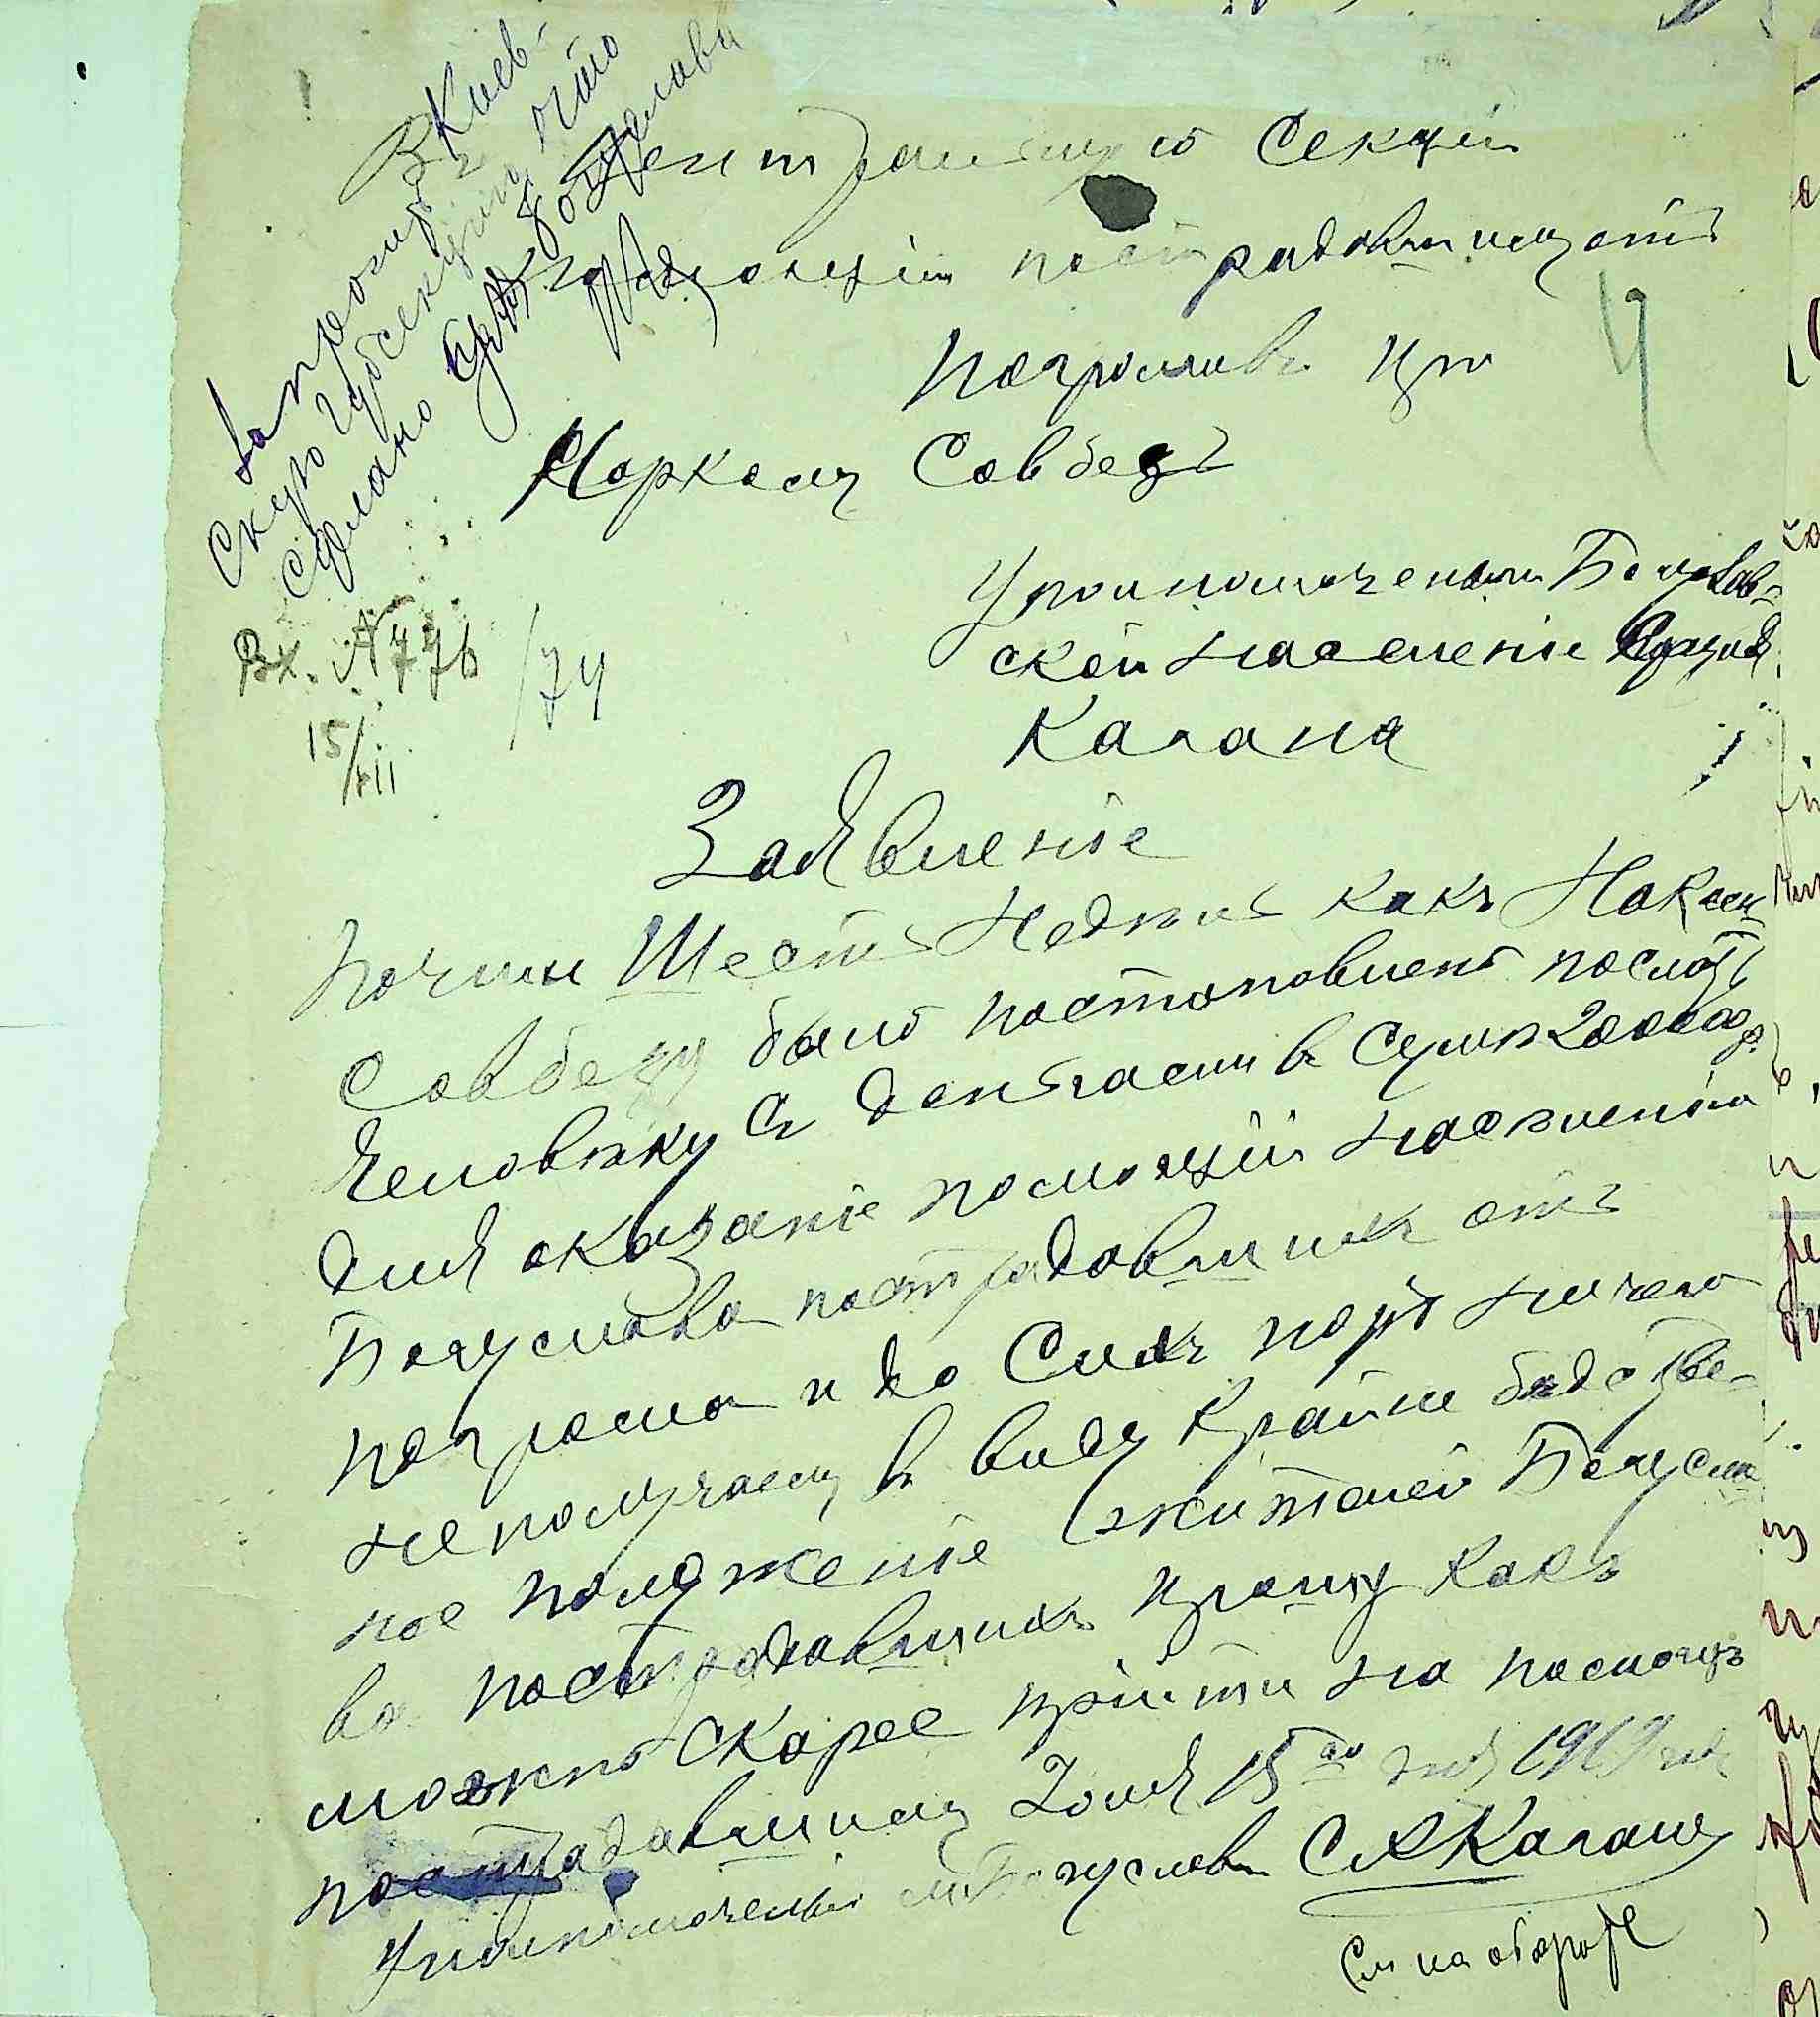 Запросить Киев-
скую губсекцию что
сделано для Богуслава
Въ Центральную Секцiи
помощiи пострадавшим отъ
погромовъ при
Наркому Совбезъ
Уполномоченым Богуслав-
ской населенiе
Кагана
Вх. № 776
/74
15/VII
Заявленiе
Почти Шесть Недѣль какъ Нарком
Совбезу было постановлено послать
человѣку съ деньгами в Сумѣ 200000 р.
для оказанiе помощiи населенiю
Богуслава пострадавших отъ
погрома и до Сихъ поръ ничего
не получаем, в виду крайне бедстве-
ное положенiе жителей Богусла
ва пострадавшихъ прошу какъ
можно скорее прiйти на помощь
пострадавшим Iюля 15го дня 1919 года
Уполномоченый м. Богуслава С Каган
См на обороте